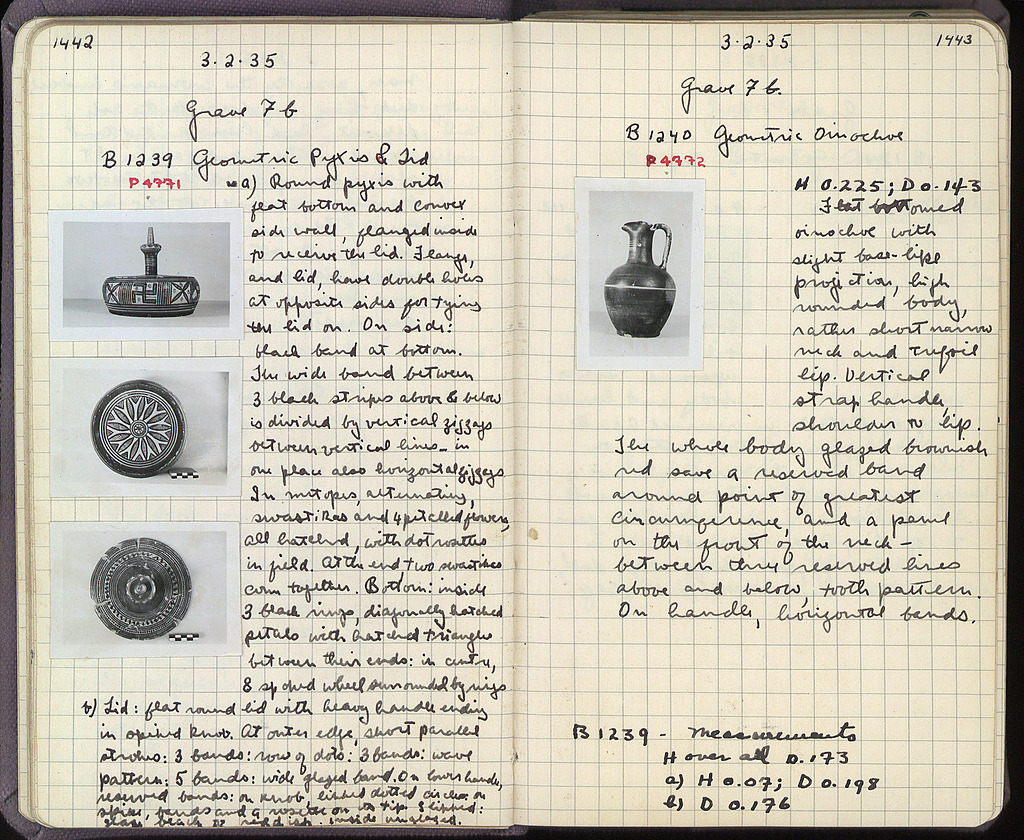 1442
3·2·35
Grave 7 b
B 1239 Geometric Pyxis & Lid
P 4771
a) Round pyxis with
flat bottom and convex
side wall, flanged inside
to receive the lid. Flange,
and lid, have double holes
at opposite sides for tying
the lid on. On side:
black band at bottom.
The wide band between
3 black stripes above & below
is divided by vertical zigzags
between vertical lines – in
one place also horizontal zigzags
In metopes, alternating,
swastikas and 4 petalled flowers,
all hatched, with dot rosettes
in field. At the end two swastikas
come together. Bottom: inside
3 black rings, diagonally hatched
petals with hatched triangles
between their ends: in centre,
8 spoked wheel surrounded by rings
b) Lid: flat round lid with heavy handle ending
in spired knob. At outer edge, short parallel
strokes: 3 bands: row of dots: 3 bands: wave
pattern: 5 bands: wide glazed band. On lower handle,
reserved bands: on knob, dotted circles: on
spire, bands and a rosette on its tip.
glaze black to reddish: inside unglazed.
3·2·35
1443
Grave 7 b.
B 1240 Geometric Oinochoe
P 4772
H 0.225; D 0.143
Flat bottomed
oinochoe with
slight base-like
projection, high
rounded body,
rather short narrow
neck and trefoil
lip. Vertical
strap handle,
shoulder to lip.
The whole body glazed brownish
red save a reserved band
around point of greatest
circumference, and a panel
on the front of the neck –
between three reserved lines
above and below, tooth pattern.
On handle, horizontal bands.
B 1239 – Measurements
H over all 0.173
a) H 0.07; D 0.198
b) D 0.176